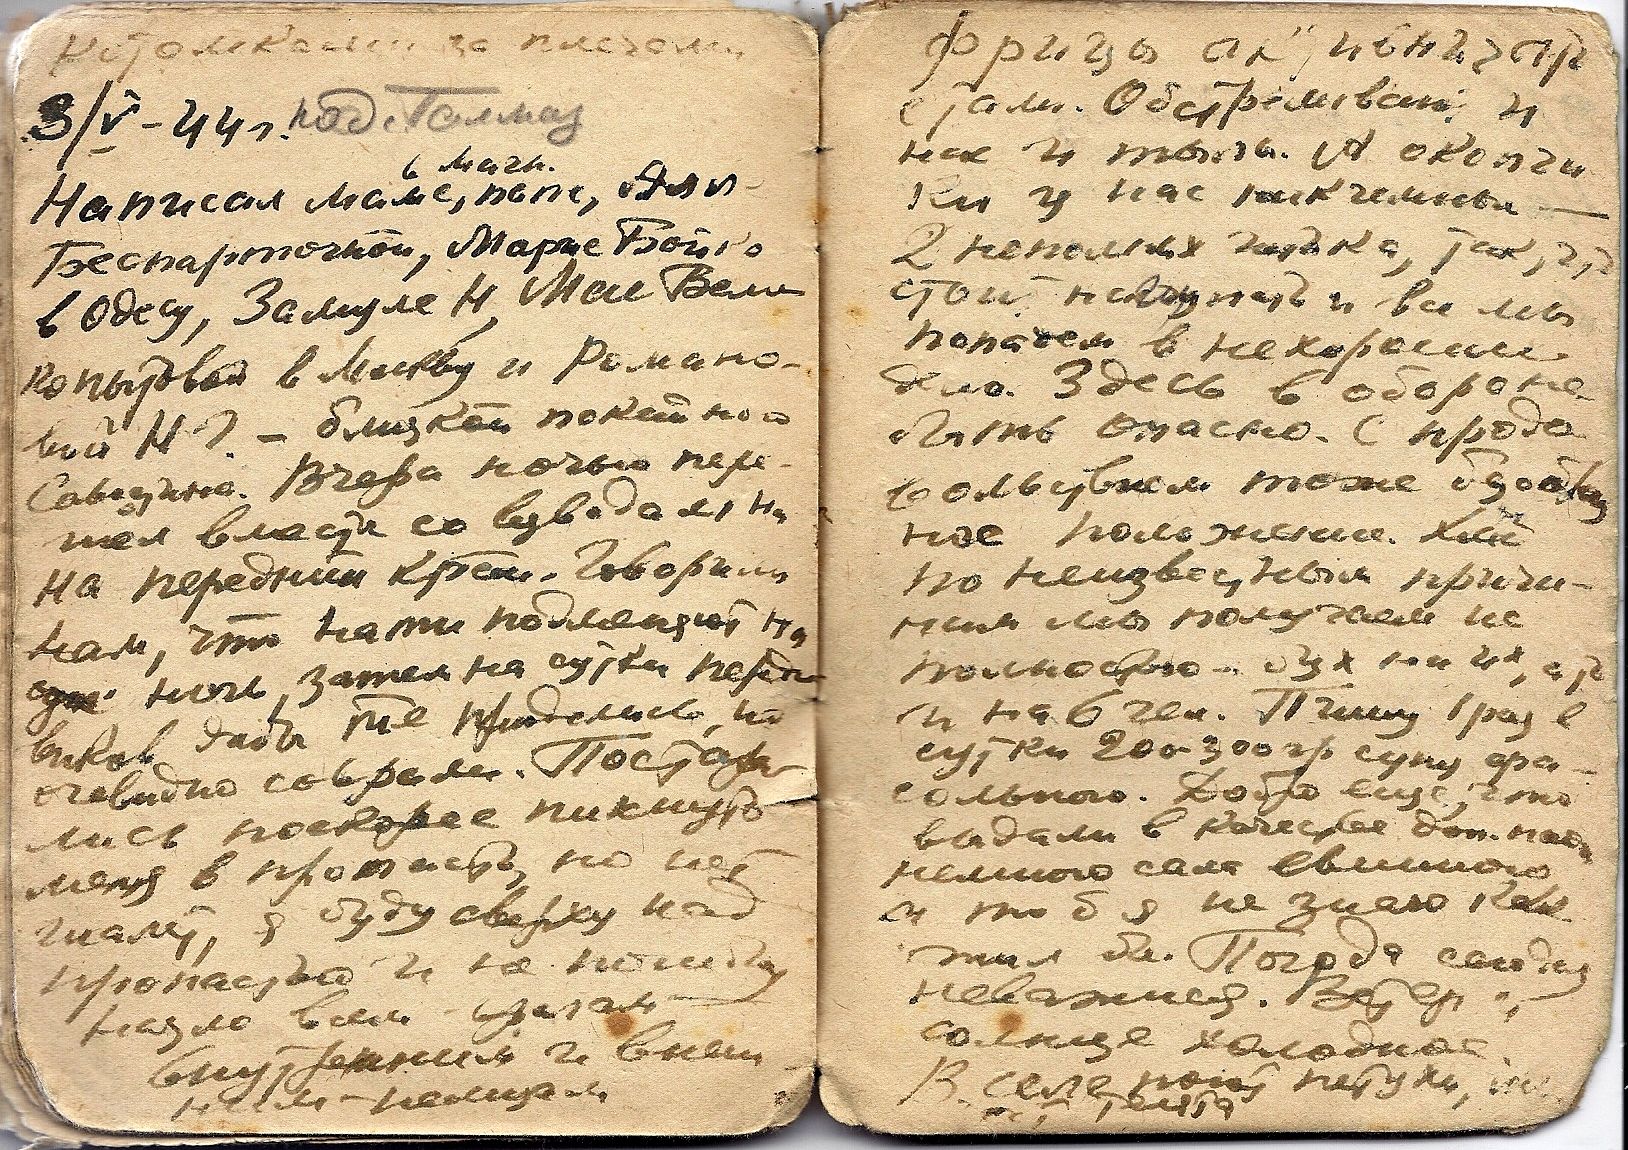 за плечами
3/V-44 г. под Талмаз
в Магн.
Написал маме, папе, Оли
Беспарточной, Марие Бойко
в Одесу, Замуле Н, Мае Вели
копытовой в Москву и Романо-
вой Н ?. – близкой покойного
Вчера ночью пере-
шел вместе со взводами на
на передний край. Говорили
нам, что нами подменяют на
ночь, затем на сутки передо
виков дабы те мылись, но
очевидно соврали. Постара
лись поскорее пихнуть
меня в пропасть, но нет
шалят, я буду сверху над
пропастью и не погибну
назло всем врагам –
внутренним и внеш
ним – немцам
Фрицы активничать
стали. Обстреливают и
нас и тылы. А окопчи
ки у нас никчемные –
2 неполных штыка, так, что
стоит наступать и все мы
попадем в нехорошее
дело. Здесь в обороне
быть опасно. С продо
вольствием тоже
ное положение. Хлеб
по неизвестным причи-
нам мы получаем не
полностью –
и на 6 чел. Пищу 1 раз в
сутки 200-300 гр супу фа-
сольного. Добро еще, что
выдали в качестве доп. пай
немного сала свинного
и то б я не знаю как
жил бы. Погода сегодня
неважная. Ветер и
солнце холодное.
В селе поют петухи,